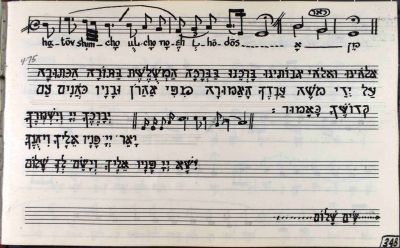 כאו״א
ha tōv shim - cho ul cho no - eh l' hō - dōs
מֵן אָ
אלהינו ואלהי אבותינו ברכנו בברכה המשלשת בתורה הכתובה
על ידי משה עבדך האמורה מפי אהרן ובניו כהנים עם
קדושך כאמור :
יברכך יי וישמרך
יאר יי פניו אליך ויחנך
ישא יי פניו אליך וישם לך שלום
שים שלום
348